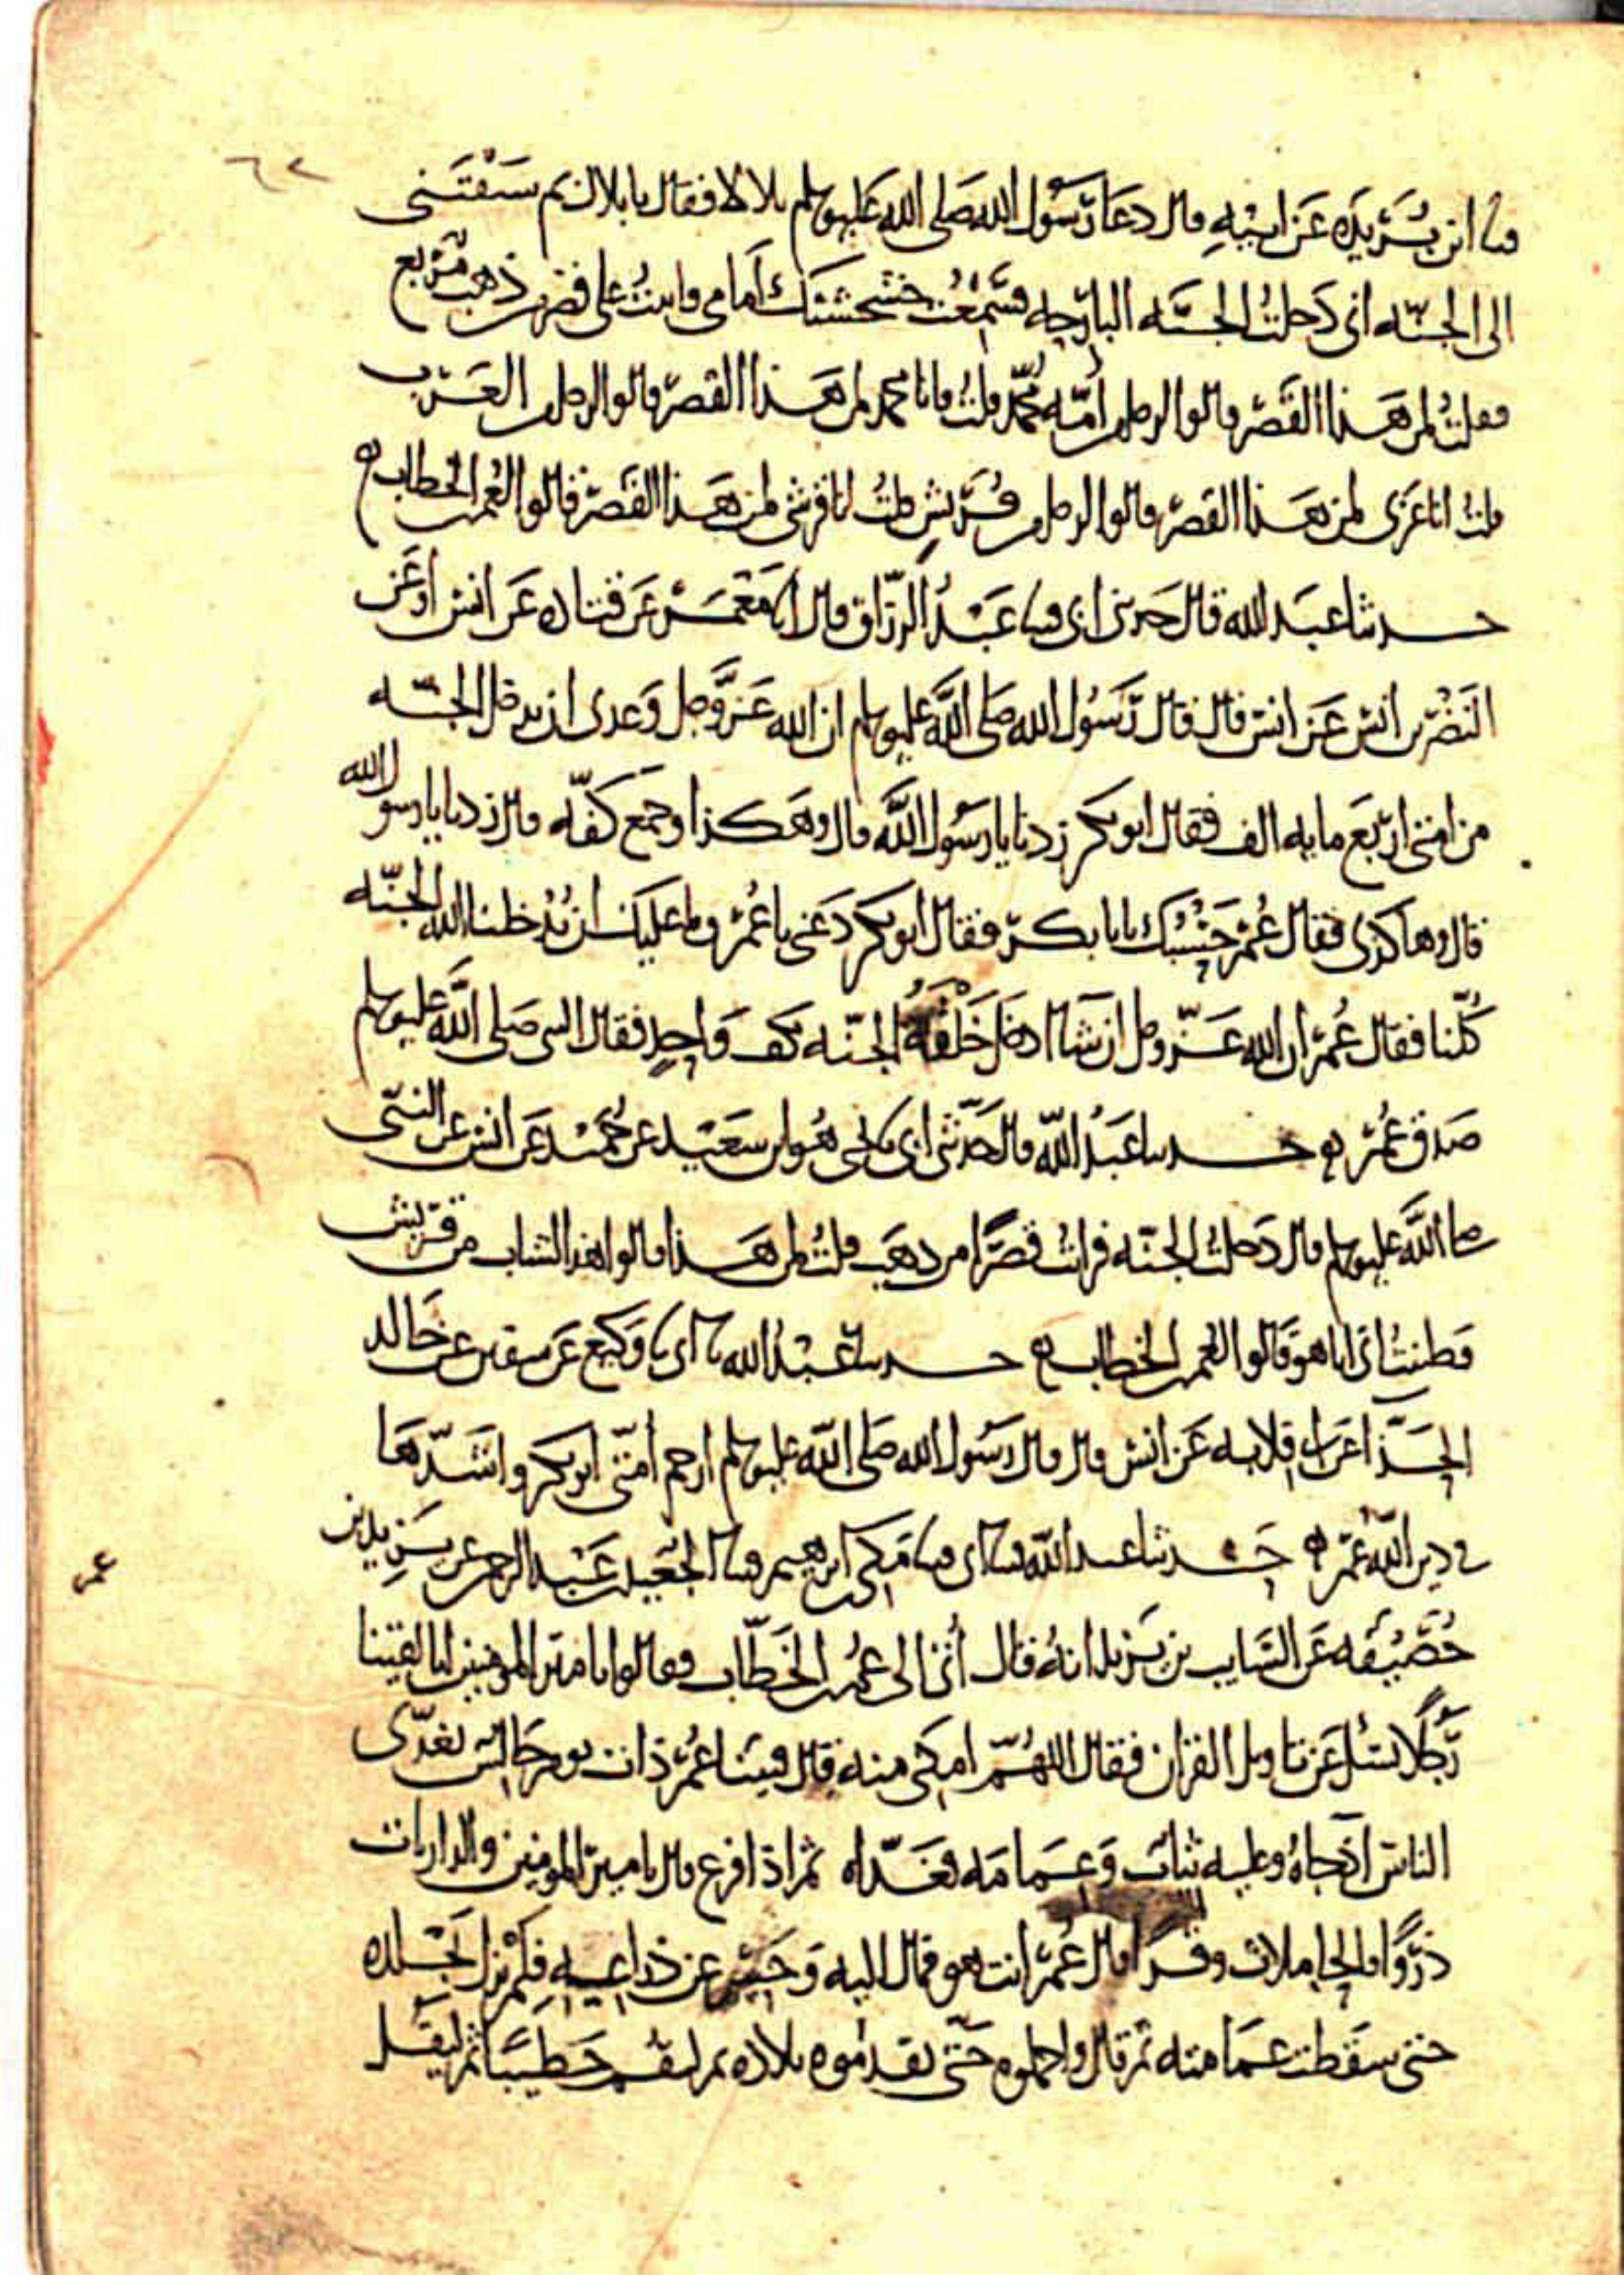 ٦٢
ثنا ابن بريده عن ابيه قال دعا رسول الله صلى الله عليه وسلم بلالا فقال يا بلال بم سبقتنى
الى الجنه انى دخلت الجنه البارحه فسمعت خشخشتك امامى واتيت على قصر من ذهب مربع
فقلت لمن هذا القصر قالوا لرجل من امه محمد قلت فانا محمد لمن هذا القصر قالوا لرجل من العرب
قلت انا عربى لمن هذا القصر قالوا لرجل من قريش قلت انا قرشى لمن هذا القصر قالوا لعمر بن الخطاب ه
حدثنا عبد الله قال حدثنى ابى قثنا عبد الرزاق قال انا معمر عن قتاده عن انس او عن
النضر بن انس عن انس قال قال رسول الله صلى الله عليه وسلم ان الله عز وجل وعدنى ان يدخل الجنه
من امتى اربع مايه الف فقال ابو بكر زدنا يا رسول الله قال وهكذا وجمع كفه قال زدنا يا رسول الله
قال وهاكذى فقال عمر حسبك يابا بكر فقال ابو بكر دعنى يا عمر وما عليك ان يدخلنا الله الجنه
كلنا فقال عمر ان الله عز وجل ان شا ادخل خلقه الجنه بكف واحد فقال النبى صلى الله عليه وسلم
صدق عمر ه حدثنا عبد الله قال حدثنى ابى نا يحيى هو ابن سعيد عن حميد عن انس عن النبى
صلى الله عليه وسلم قال دخلت الجنه فرايت قصرا من ذهب قلت لمن هذا قالوا هذا لشاب من قريش
فظننت انى انا هو قالوا لعمر بن الخطاب ه حدثنا عبد الله نا ابى نا وكيع عن سفين عن خالد
الحذا عن ابى قلابه عن انس قال قال رسول الله صلى الله عليه وسلم ارحم امتى ابو بكر واشدها
فى دين الله عمر ه حدثنا عبد الله قثنا ابى قثنا مكى بن ابرهيم قثنا الجعيد بن عبد الرحمن عن يزيد بن
عمر
خصيفه عن السايب بن يزيد انه قال أتى الى عمر بن الخطاب فقالوا يا امير المومنين انا لقينا
رجلا يسئل عن تاويل القران فقال اللهم امكنى منه قال فبينا عمر ذات يوم جالس يغدى
الناس اذ جاه وعليه ثياب وعمامه فغداه ثم اذا فرغ قال يا امير المومنين والذاريات
ذروا فالحاملات وقرا قال عمر انت هو فمال اليه وحسر عن ذراعيه فلم يزل يجلده
حتى سقطت عمامته ثم قال واحملوه حتى تقدموه بلاده ثم ليقم خطيبا ثم ليقل